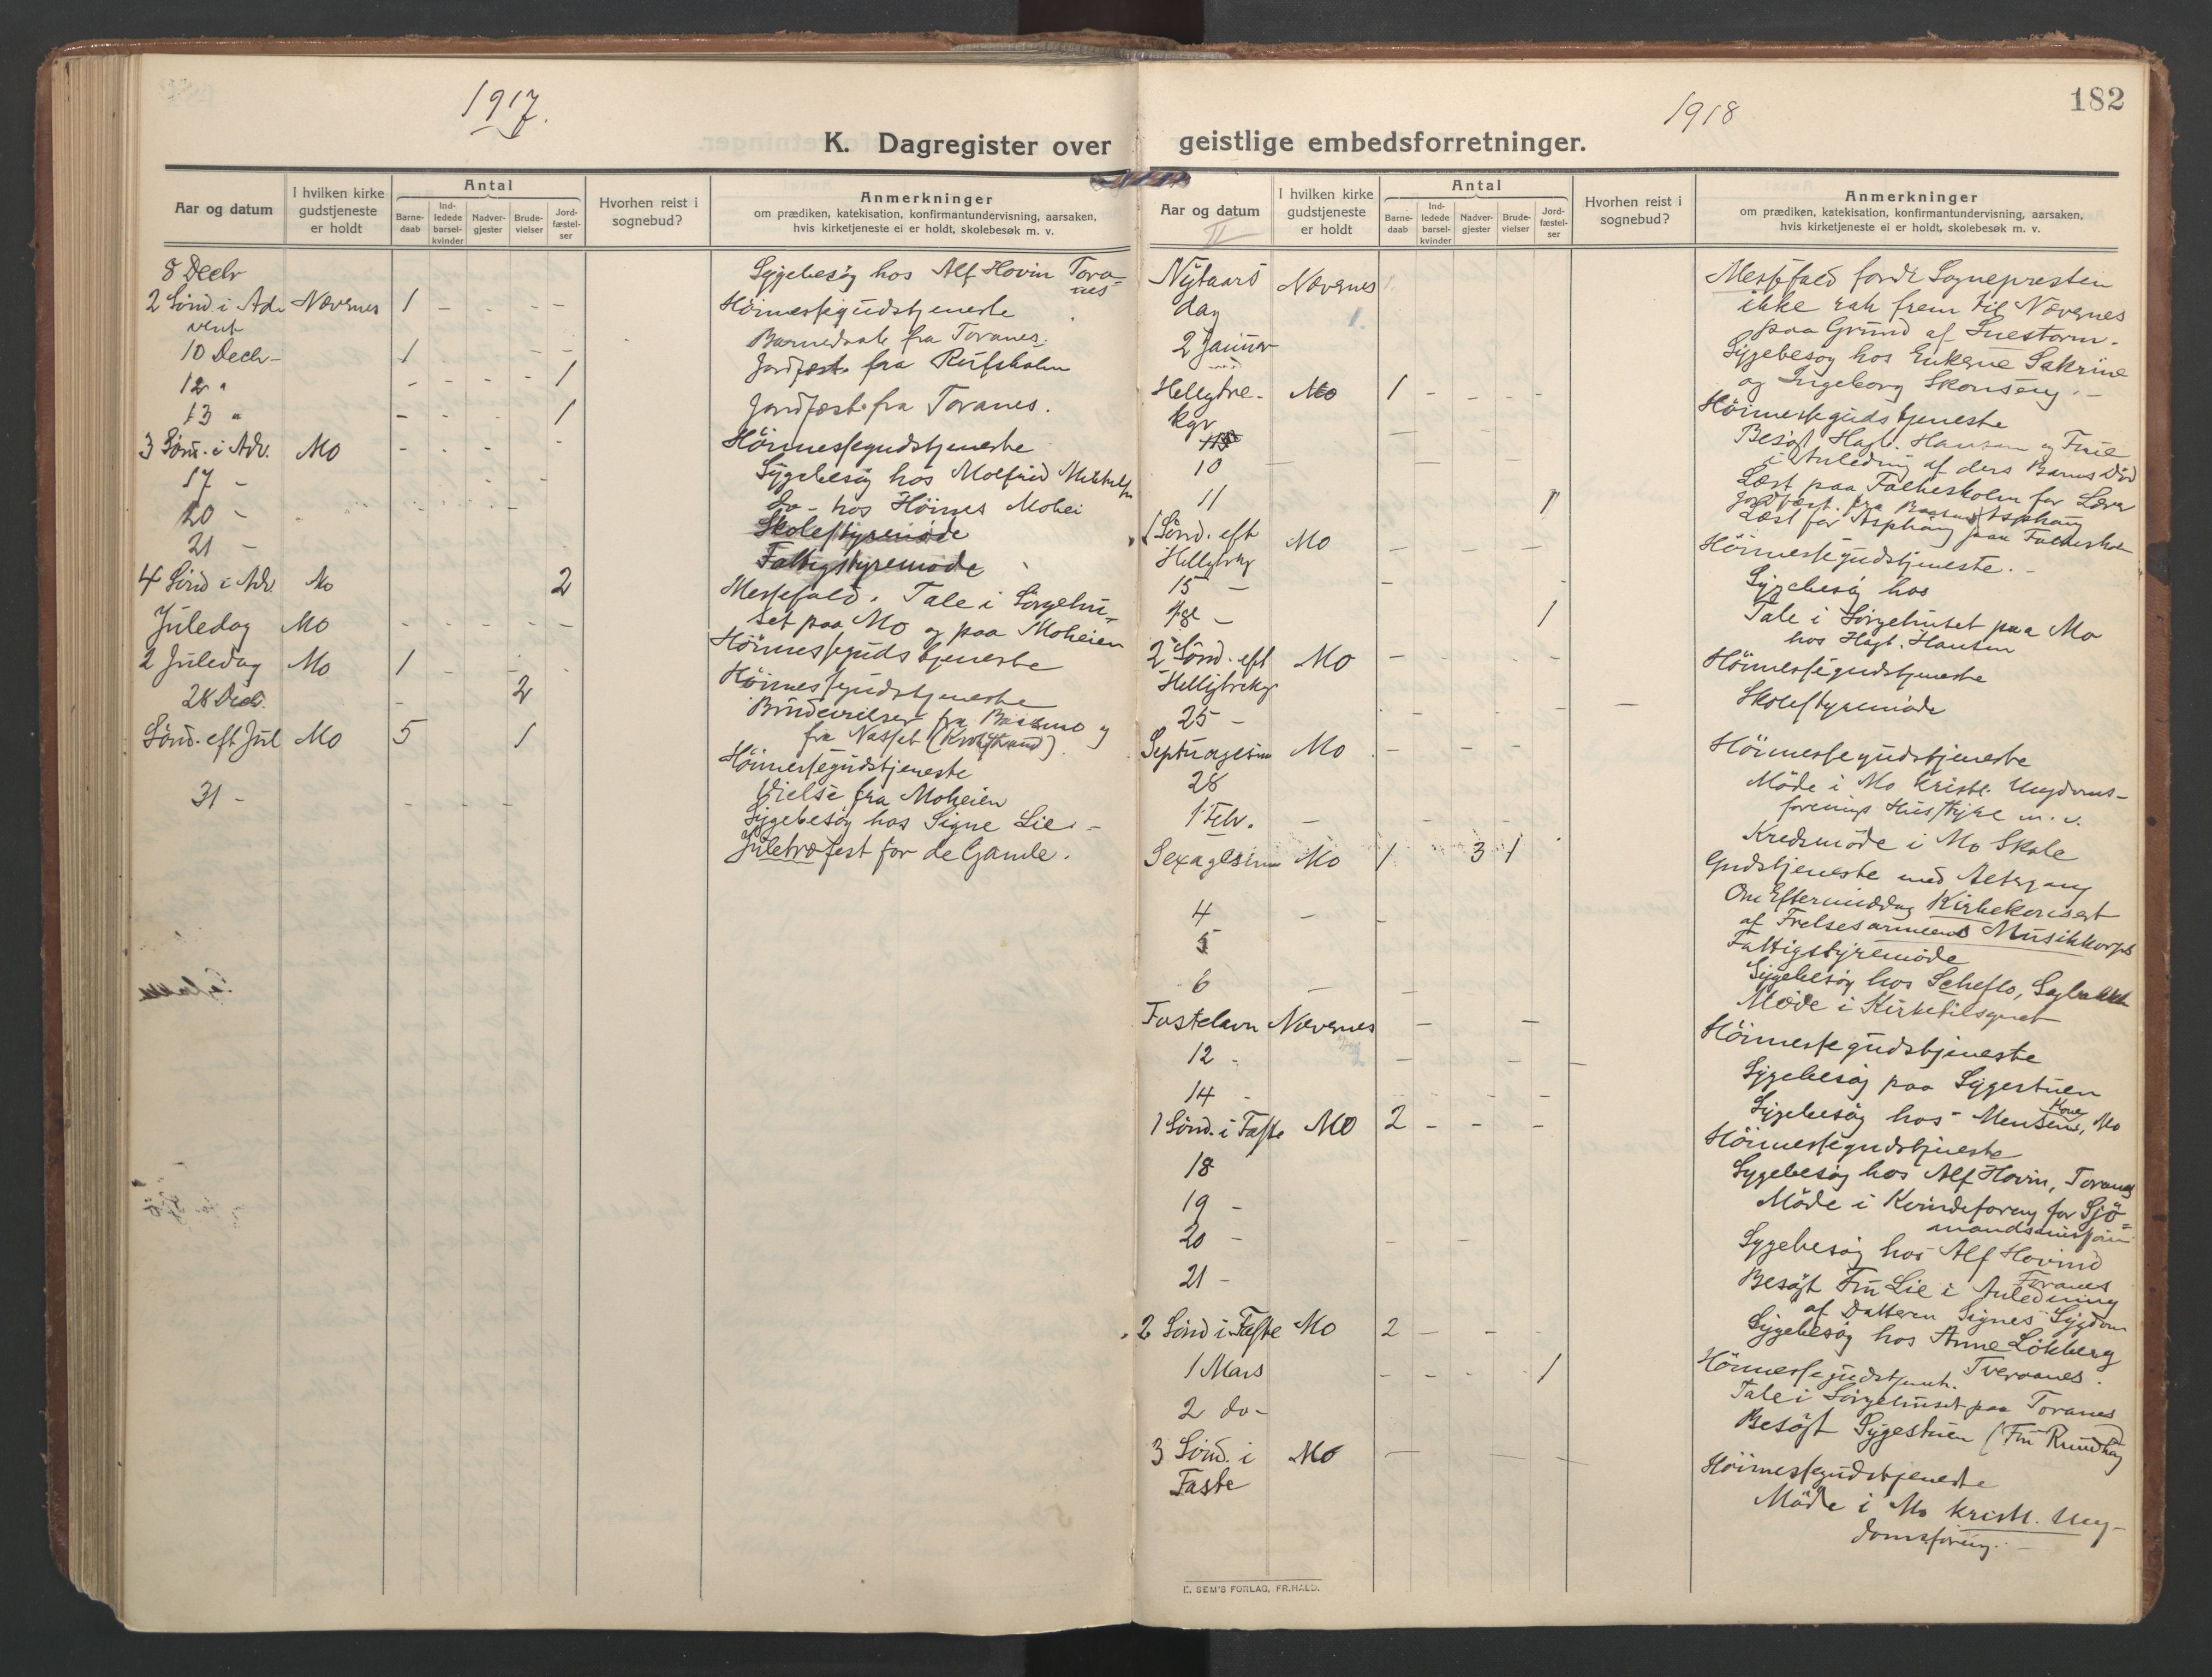 1917.
K. Dagregister over
Aar og datum
I hvilken kirke gudstjeneste er holdt
Antal
Barne-daab
Ind-ledede barsel-kvinder
Nadver-gjester
Brude-vielser
Jord-fæstel-ser
Hvorhen reist i sognebud?
Anmerkninger
om prædiken, katekisation, konfirmantundervisning, aarsaken,
hvis kirketjeneste ei er holdt, skolebesøk m. v.
8 Decbr Sygebesög hos Alf Hovin Tora-
nes
2 Sönd i Ad- Nævernes 1 - - - - Höimessegudstjeneste
vent
10 Decbr - 1 Barnedaab fra Toranes.
12 " - - - - 1 Jordfæst. fra Rufsholm
13 " - - - - 1 Jordfæst. fra Toranes.
3 Sönd. i Adv. Mo - - - - - Höimessegudstjeneste
17 - Sygebesög hos
20 - Do - hos Höines Mohei
21 - Skolestyremöde
Fattigstyremöde
4 Sönd i Adv. Mo 2 Messefald. Tale i Sörgehu-
set paa Mo og paa Moheien
Juledag Mo - - - - - Höimessegudstjeneste
2 Juledag Mo 1 - - - Höimessegudstjeneste
28 Decb. - 2 Brudevielser fra Båsmo og
fra Nasset
Sönd. eft Jul Mo 5 1 Höimessegudstjeneste
Vielse fra Moheien
31 - - - - Sygebesög hos Signe Lie. -
Juletræfest for de Gamle.
1918
182
geistlige embedsforretninger.
Aar og datum
I hvilken kirke gudstjeneste er holdt
Antal
Barne-daab
Ind-ledede barsel-kvinder
Nadver-gjester
Brude-vielser
Jord-fæstel-ser
Hvorhen reist i sognebud?
Anmerkninger
om prædiken, katekisation, konfirmantundervisning, aarsaken,
hvis kirketjeneste ei er holdt, skolebesøk m. v.
Nytaars Nævernes Messefald fordi Sognepresten
dag ikke rak frem til Nævernes
paa Grund af Snestorm.
2 Januar Sygebesög hos Enkerne Sakrine
og Ingeborg Skonseng. -
Helligtre- Mo 1 - - - - Höimessegudstjeneste
kgr
10 Besögt Hagb. Hansen og Frue
i Anledning af ders Barns Död
11 1 Læst paa for
Jordfæst. fra
Læst for paa
1 Sönd. eft Mo - - - - Höimessegudstjeneste. -
Helligtrkg
15 - Sygebesög hos
18 - 1 Tale i Sörgehuset paa Mo
hos Hagb. Hansen
2 Sönd. eft Mo - - - - Höimessegudstjeneste
Helligtrekgr
25 - Skolestyremöde
Septuagesim Mo - - - - Höimessegudstjeneste
28 Möde i Mo Kristl. Ungdoms-
forenings Husstyre m. v.
1 Febr. - Kredsmöde i Mo Skole
Sexagesim Mo 1 3 1 Gudstjeneste med Altergang
Om Eftermiddag Kirkekonsert
af Frelsesarmeens Musikkorps
4 - - Fattigstyremöde
5 Sygebesög hos Scheflo,
6 - - Möde i Kirketilsynet
Fastelavn Nævernes - - Höimessegudstjeneste
12 - Sygebesög paa Sygestuen
14 - Sygebesög hos Kone, Mo
1 Sönd. i Faste Mo 2 - - - Höimessegudstjeneste
18 Sygebesög hos Alf Hovin, Toranes
19 - Möde i Kvindeforeng for Sjö-
mandsmisjon
20 - Sygebesög hos Alf Hovind
Toranes
21 - Besögt Fru Lie i Anledning
af Datteren Signes Sygdom
Sygebesög hos Anne Lökberg
Tveraanes.
2 Sönd i Faste Mo 2 - - - Höimessegudstjenst.
1 Mars - - - - 1 Tale i Sörgehuset paa Toranes
2 do - Besögt Sygestuen (Fru Rundhaug
3 Sönd. i Mo - - - Höimessegudstjeneste
Faste
Möde i Mo Kristl. Ung-
domsforeng. -
E. SEM'S FORLAG, FR.HALD.